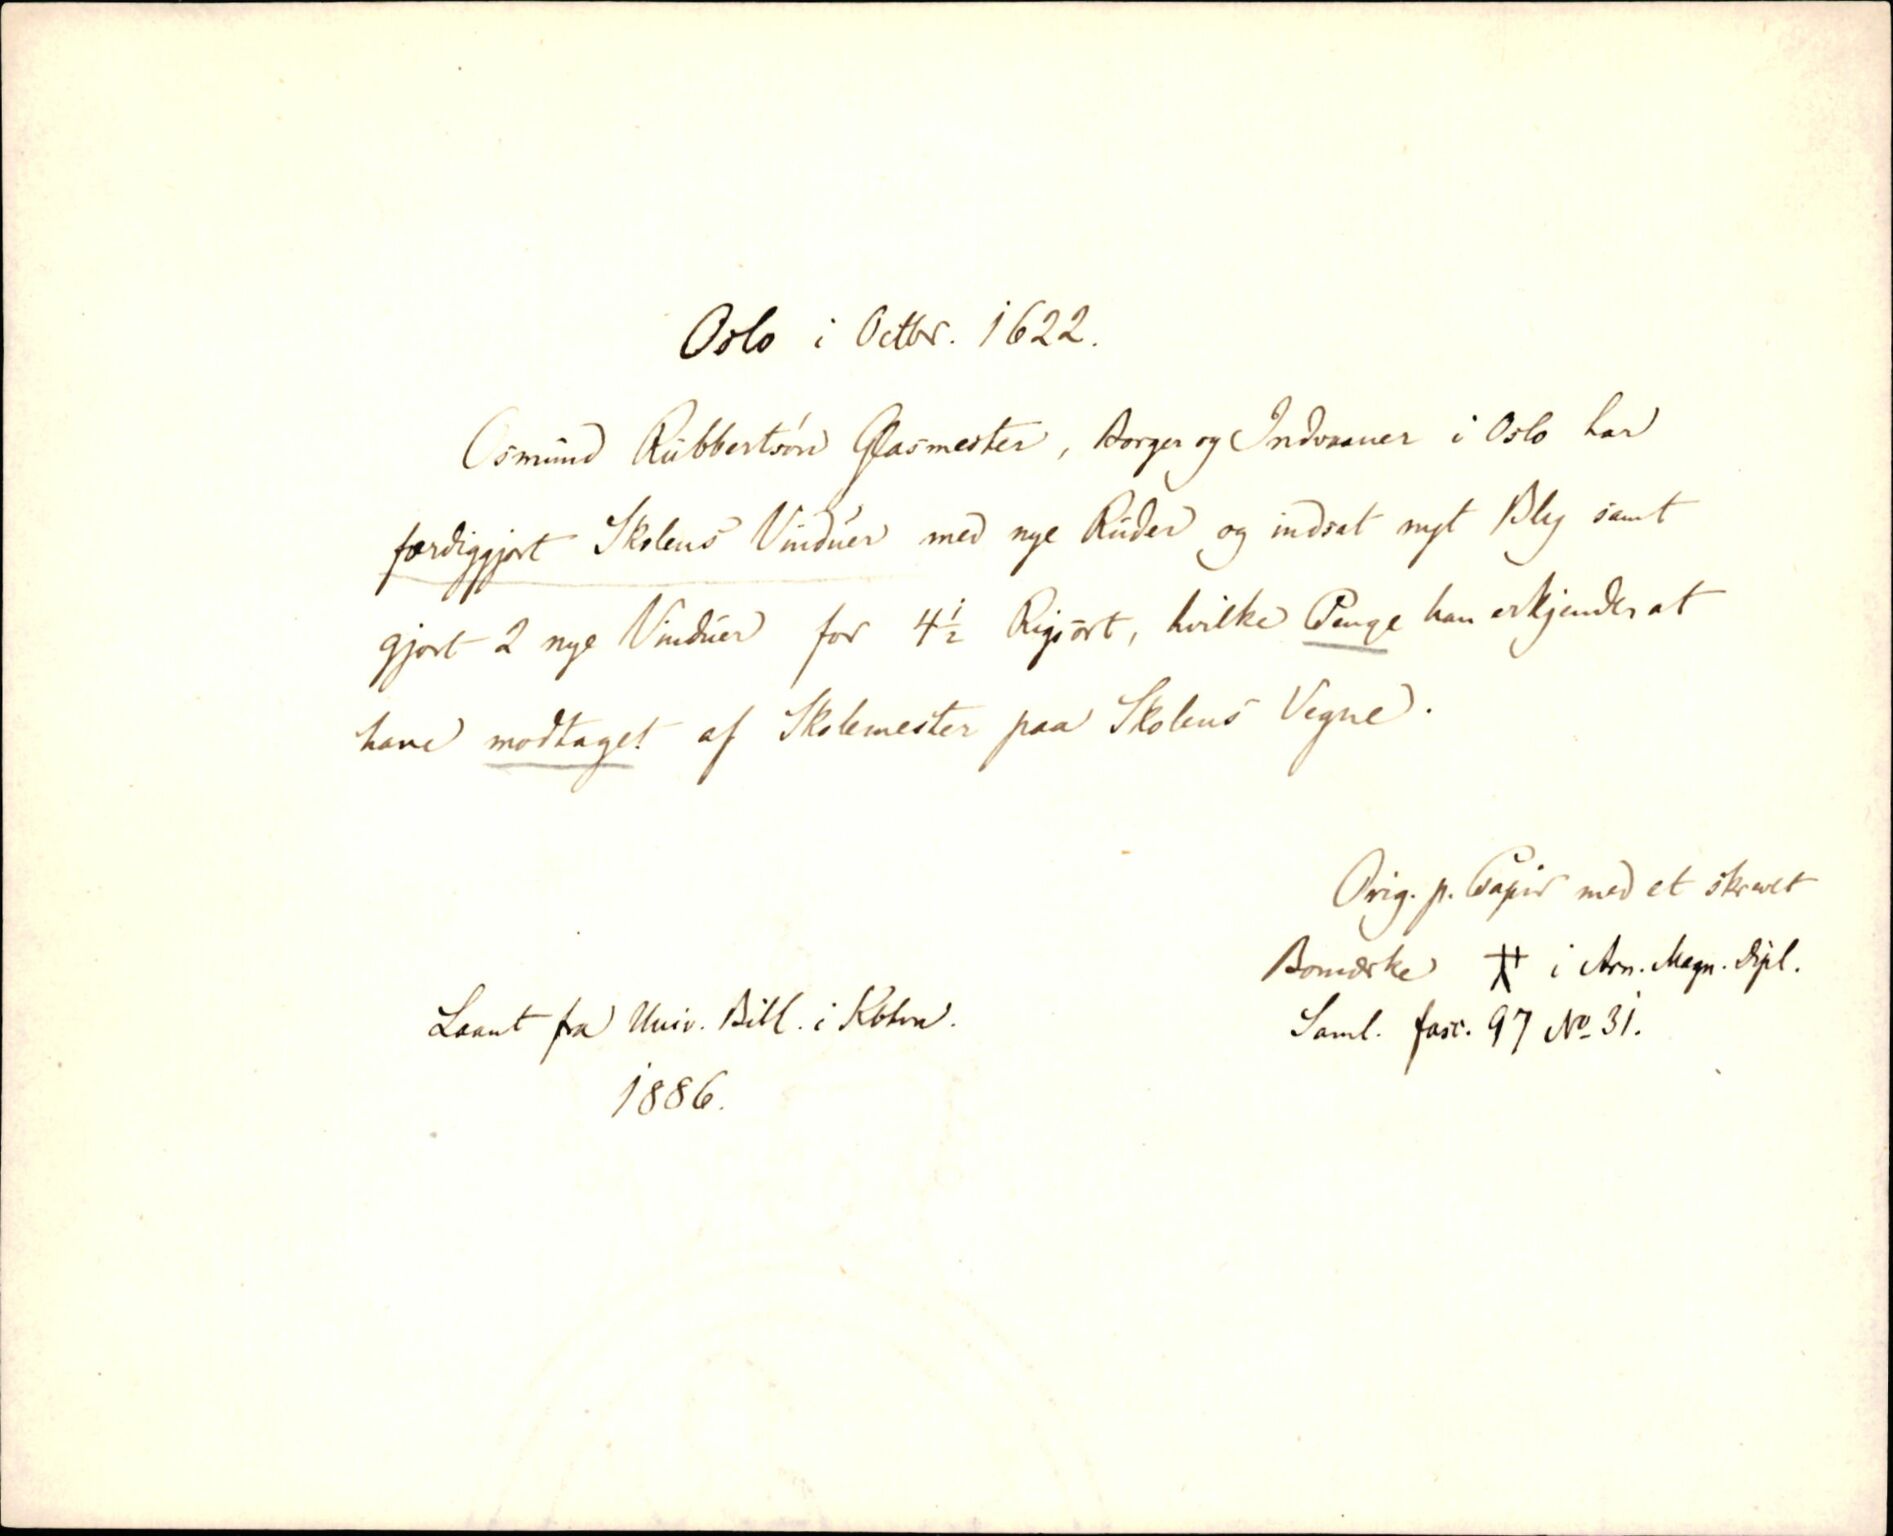 Oslo i Octbr. 1622.
Osmund Rubbertsön Glasmester, Borger og Indvaaner i Oslo har
færdiggjort Skolens Vinduer med nye Ruder og indsat nyt Bly samt
gjort 2 nye Vinduer for 4½ Rigsort, hvilke Penge han erkjender at
have modtaget af Skolemester paa Skolens Vegne.
Orig. p. Papir med et skrevet
Bomærke i Arn. Magn. Dipl.
Saml. fasc. 97 No 31.
Laant fra Univ. Bibl. i Kbhvn.
1886.